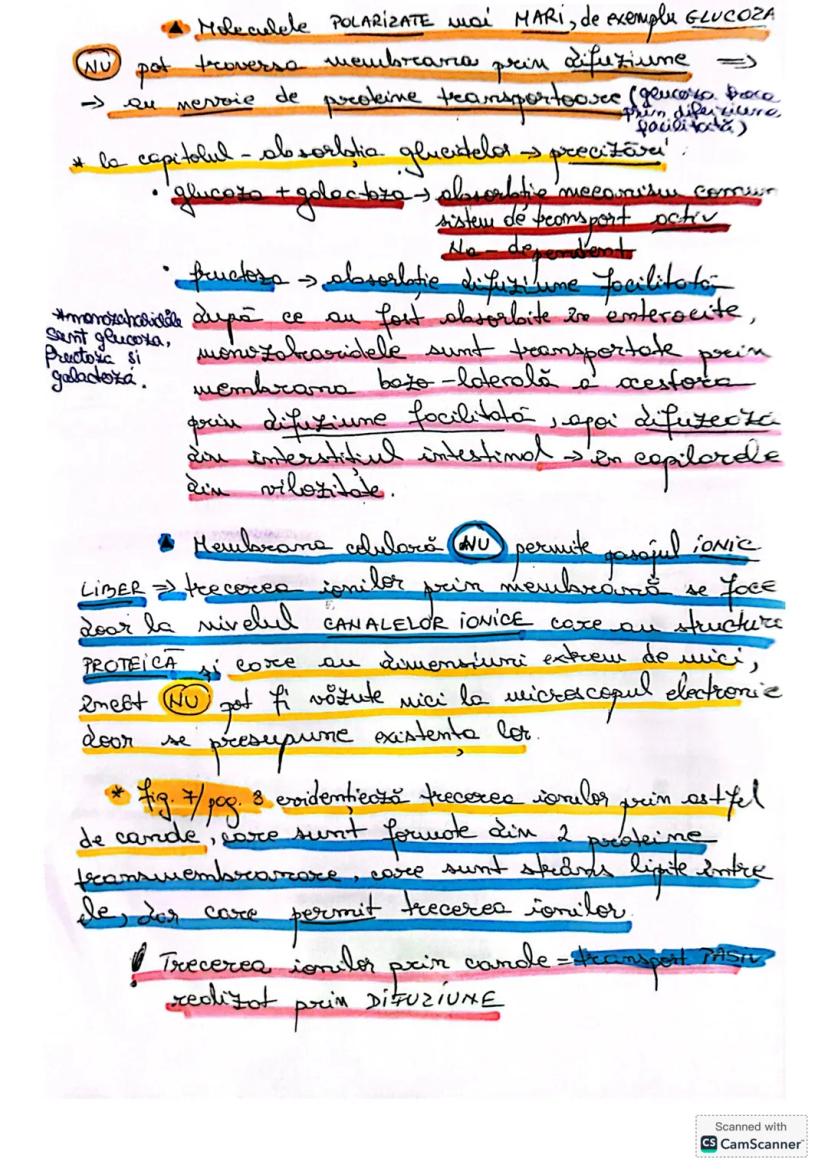 ▲ Moleculele POLARIZATE mai MARI, de exemplu GLUCOZA
NU pot traversa membrana prin difuziune =>
→ au nevoie de proteine transportoare (glucoza trece
prin difuziune
facilitată)
* la capitolul - absorbția glucidelor → precizări:
• glucoza + galactoza → absorbție mecanism comun
sistem de transport activ
Na - dependent
• fructoza → absorbție difuziune facilitată
*monozaharidele
sunt glucoza,
fructoza și
galactoza.
după ce au fost absorbite în enterocite,
monozaharidele sunt transportate prin
membrana bazo-laterală a acestora
prin difuziune facilitată, apoi difuzează
din interstițiul intestinal → în capilarele
din vilozitate.
▲ Membrana celulară NU permite pasajul IONIC
LIBER => trecerea ionilor prin membrană se face
doar la nivelul CANALELOR IONICE care au structură
PROTEICĂ și care au dimensiuni extrem de mici,
încât NU pot fi văzute nici la microscopul electronic
doar se presupune existența lor.
* Fig. 7/pag. 8 evidențiază trecerea ionilor prin astfel
de canale, care sunt formate din 2 proteine
transmembranare, care sunt strâns lipite între
ele, dar care permit trecerea ionilor.
! Trecerea ionilor prin canale = transport PASIV
realizat prin DIFUZIUNE
Scanned with
CS CamScanner